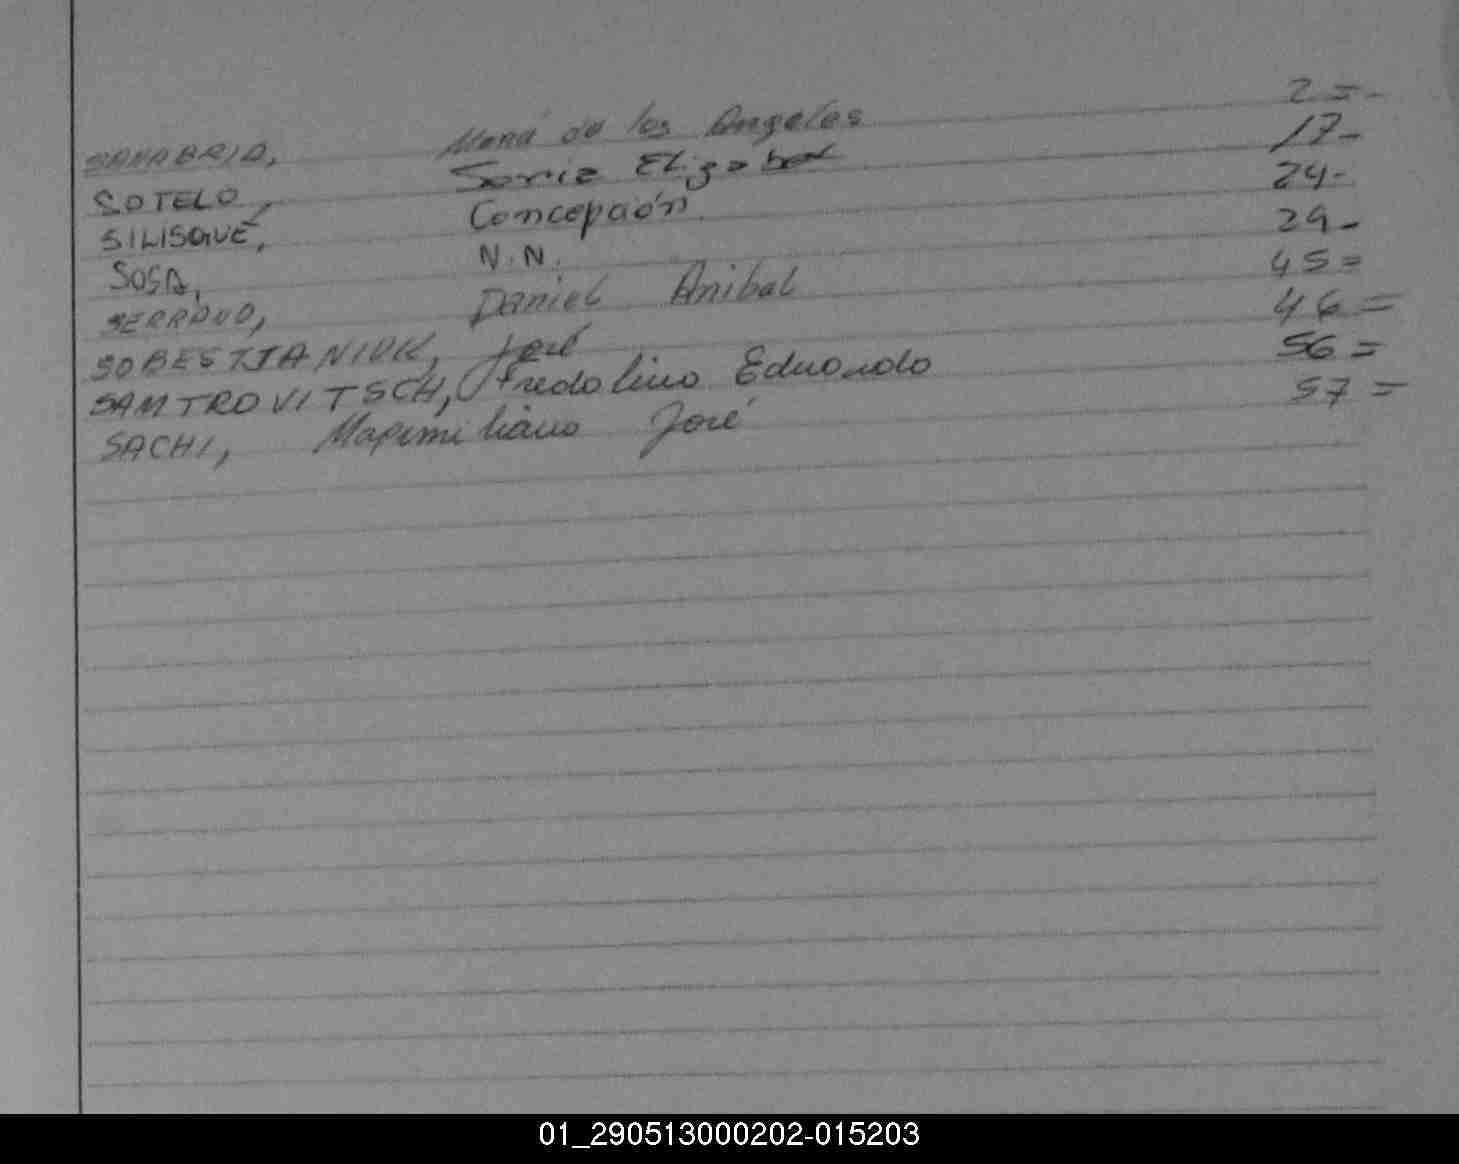 SANABRIA, María de los Angeles 2=-
SOTELO, Sonia Elizabet 17-
SILISQUÉ, Concepción 24-
SOSA, N.N. 29-
SERRANO, Daniel Anibal 45=
SOBESTIANIUK, José 46=
SAMTROVITSCH, Fredolino Eduardo 56=
SACHI, Maximiliano José 57=
01_290513000202-015203